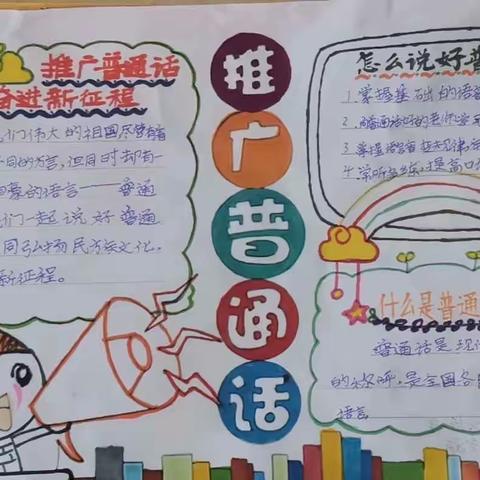 推广普通话
奋进新征程
们伟大的祖国尽管有
不同的方言,但同时却有一
的语言——普通
们一起说好普通
同弘扬民族文化,
新征程。
推
广
普
通
话
怎么说好普
1.掌握基础的语
3.掌握
4.常听多练,提高口
什么是普通
普通话是现代
的称呼,是全国各
语言